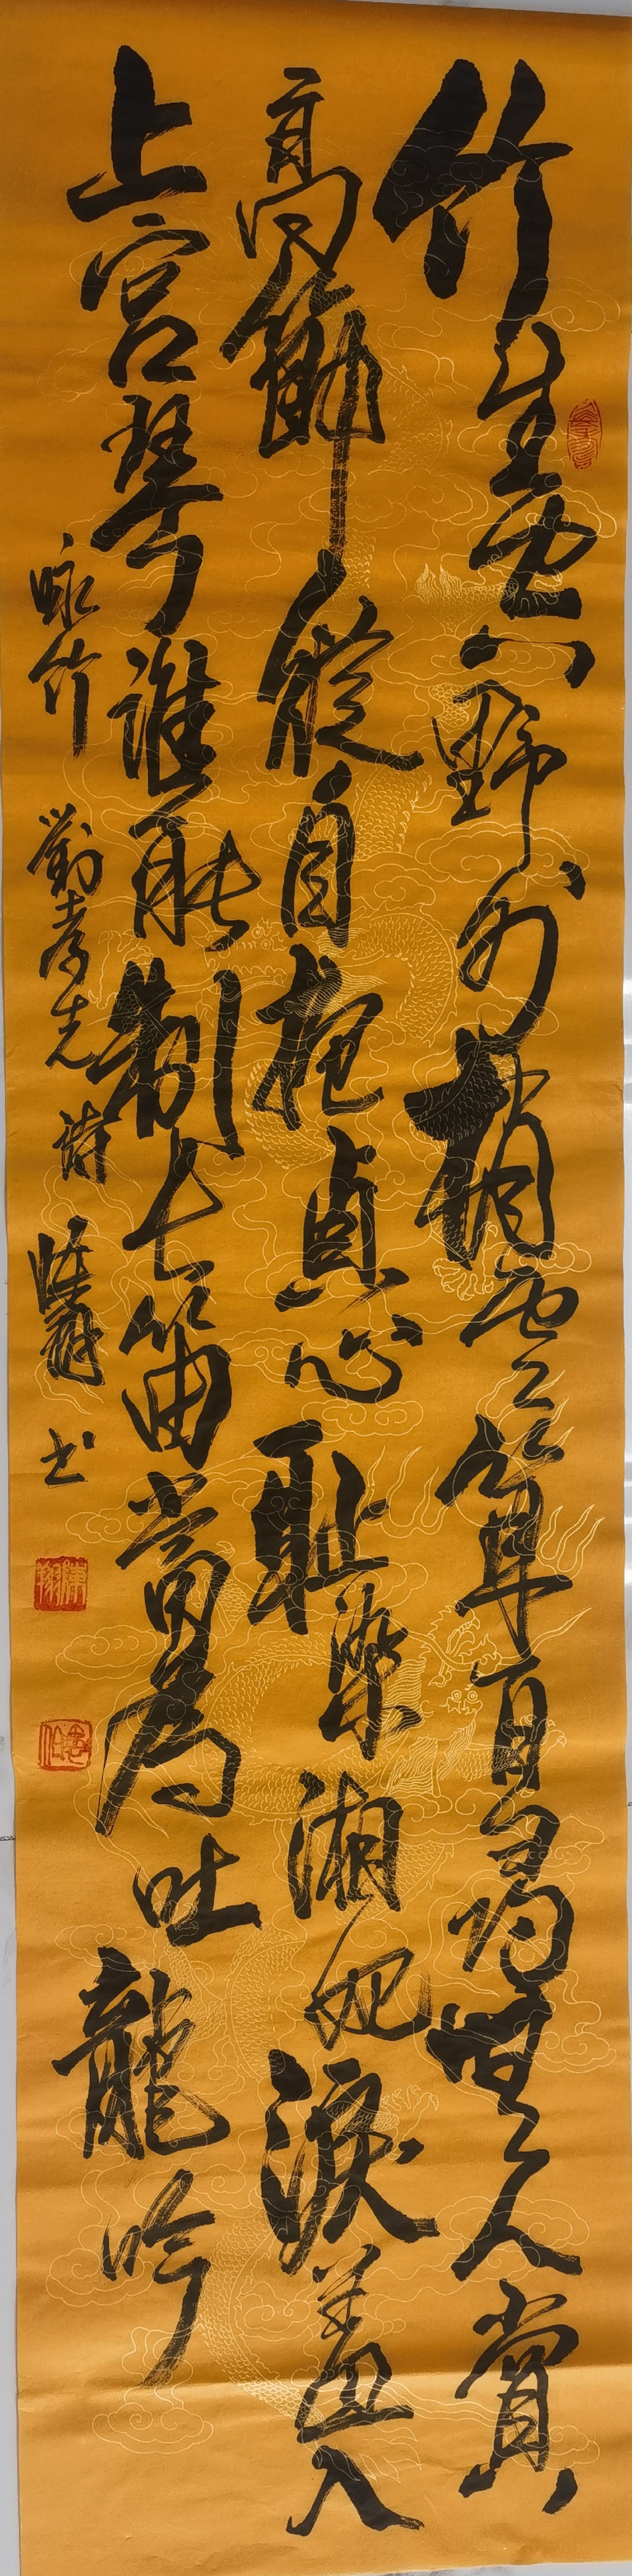 竹生空野外梢雲耸百尋無人賞
高節從自抱貞心耻染湘妃淚羞入
上宫琴誰能制長笛當為吐龍吟
咏竹 劉孝先詩 书